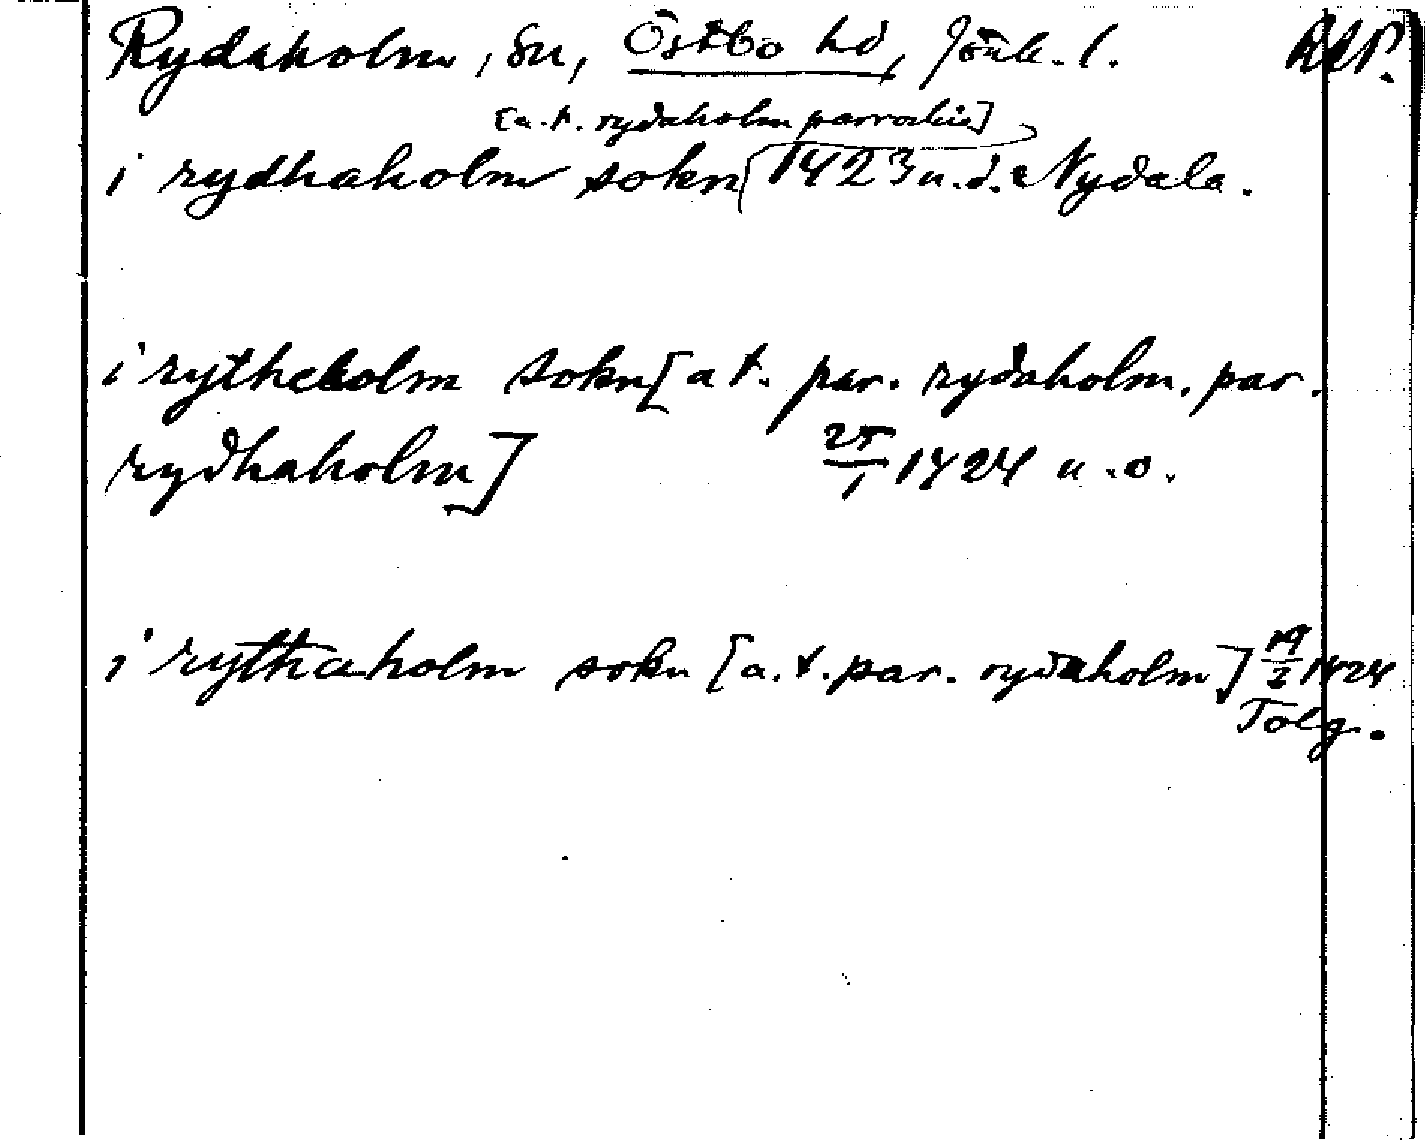 Rydaholm, sn, Östbo hd, Jönk. l. RAP.
[a.t. rydaholm parrochie]
i rydhaholm sokn 1423 u.d. Nydala.
i rytheholm sokn [a t. par. rydaholm. par.
rydhaholm] 25/1 1424 u.o.
i rythaholm sokn [a.t. par. rydaholm] 19/2 1424
Tolg.